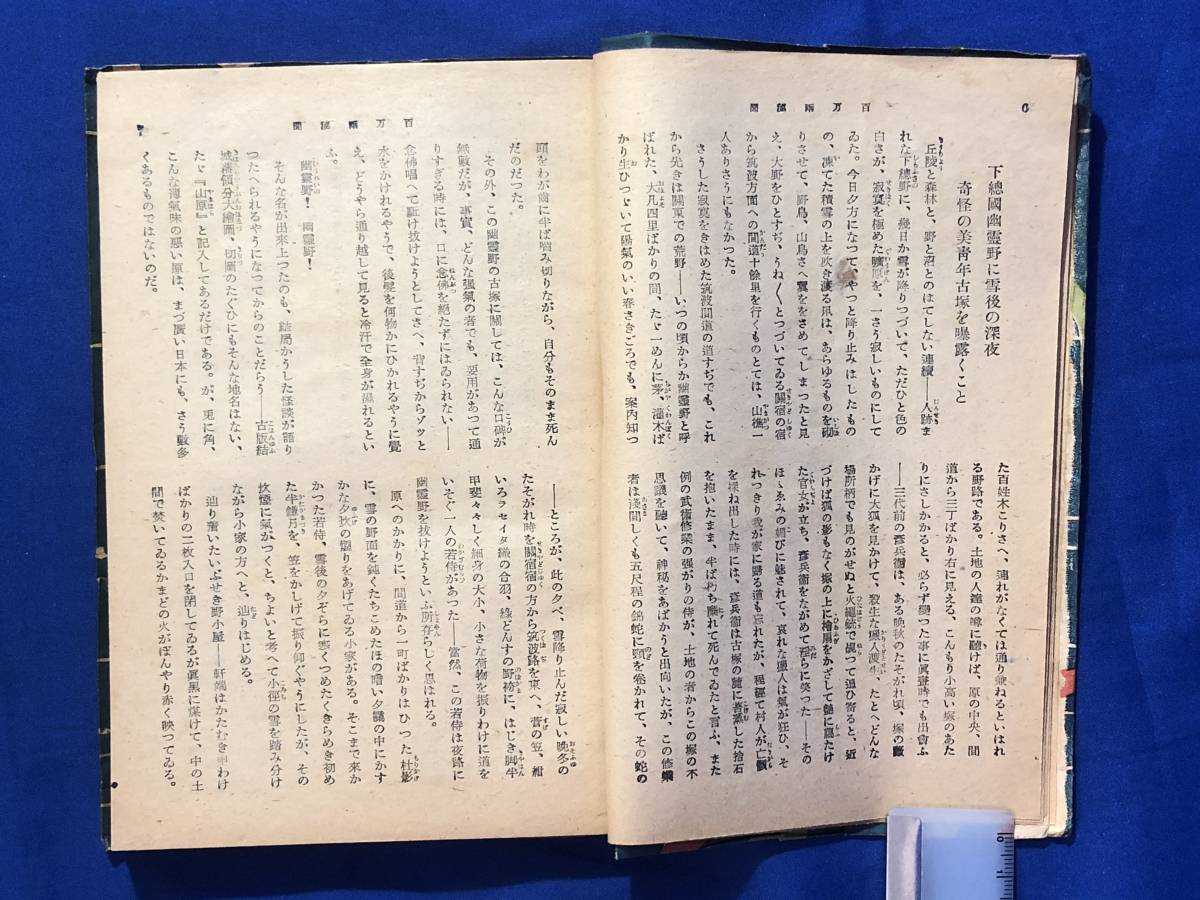 6
百万兩祕聞
下總國幽靈野に雪後の深夜
奇怪の美靑年古塚を曝露くこと
丘陵と森林と、野と沼とのはてしない連續――人跡ま
れな下總野に、幾日か雪が降りつづいて、ただひと色の
白さが、寂寞を極めた曠原を、一さう寂しいものにして
ゐた。今日夕方になつて、やつと降り止みはしたもの
の、凍てた積雪の上を吹き渡る凩は、あらゆるものを砌
りさせて、野鳥、山鳥さへ翼ををさめてしまつたと見
え、大野をひとすぢ、うね〱とつづいてゐる關宿の宿
から筑波方面への間道十餘里を行くものとては、山樵一
人ありさうにもなかつた。
さうした寂寞をきはめた筑波間道の道すぢでも、これ
から先きは關東での荒野――いつの頃からか幽靈野と呼
ばれた、大凡四里ばかりの間、たゞ一めんに茅、灌木ば
かり生ひつゞいて陽氣のいい春さきごろでも、案內知つ
た百姓木こりさへ、連れがなくては通り兼ねるといはれ
る野路である。土地の人達の噂に聽けば、原の中央、間
道から三丁ばかり右に見える、こんもり小高い塚のあた
りにさしかかると、必らず變つた事に眞晝時でも出會ふ
――三代前の彥兵衞は、ある晩秋のたそがれ頃、塚の藪
かげに大狐を見かけて、殺生な獵人渡生、たとへどんな
場所柄でも見のがせぬと火繩銃で覘つて追ひ寄ると、近
づけば狐の影もなく塚の上に檜扇をかざして艶に﨟たけ
た官女が立ち、彥兵衞をながめて淫らに笑つた――その
ほゝゑみの媚びに魅されて、哀れな獵人は氣が狂ひ、そ
れつきり我が家に歸る道も忘れたが、程經て村人が亡骸
を尋ね出した時には、彥兵衞は古塚の麓に苔蒸した捨石
を抱いたまま、半ば朽ち爛れて死んでゐたと言ふ、また
例の武術修業の强がりの侍が、土地の者からこの塚の不
思議を聽いて、神祕をあばかうと出向いたが、この修業
者は淺間しくも五尺程の錦蛇に頸を卷かれて、その蛇の
百万兩祕聞
頭をわが齒に半ば嚙み切りながら、自分もそのまま死ん
だのだつた。
その外、この幽靈野の古塚に關しては、こんな口碑が
無數だが、事實、どんな强氣の者でも、要用があつて通
りすぎる時には、口に念佛を絕たずにはゐられない――
念佛唱へて駈け拔けようとしてさへ、背すぢからゾッと
水をかけれるやうで、後髮を何物かにひかれるやうに覺
え、どうやら通り越して見ると冷汗で全身が濕れるとい
ふ。
幽靈野!　幽靈野!
そんな名が出來上つたのも、結局かうした怪談が語り
つたへられるやうになつてからのことだらう――古版結
城藩領分大繪圖、切圖のたぐひにもそんな地名はない、
たゞ『山原』と記入してあるだけである。が、兎に角、
こんな薄氣味の惡い原は、まづ廣い日本にも、さう數多
くあるものではないのだ。
――ところが、此の夕べ、雪降り止んだ寂しい晩冬の
たそがれ時を關宿宿の方から筑波路を東へ、菅の笠、紺
いろラセイタ織の合羽、綠どんすの野袴に、はじき脚半
甲斐々々しく細身の大小、小さな荷物を振りわけに道を
いそぐ一人の若侍があつた――當然、この若侍は夜路に
幽靈野を拔けようといふ所存らしく思はれる。
原へのかかりに、間道から一町ばかりはひつた杜影
に、雪の野面を鈍くたちこめたほの暗い夕靄の中にかす
かな夕炊の煙りをあげてゐる小家がある。そこまで來か
かつた若侍、雪後の夕ぞらに寒くつめたくきらめき初め
た半鎌月を、笠をかしげて振り仰ぐやうにしたが、その
炊煙に氣がつくと、ちよいと考へて小徑の雪を踏み分け
ながら小家の方へと、辿りはじめる。
辿り着いたいぶせき野小屋――軒端はかたむき申わけ
ばかりの二枚入口を閉してゐるが眞黑に煤けて、中の土
間で焚いてゐるかまどの火がぼんやり赤く映つてゐる。